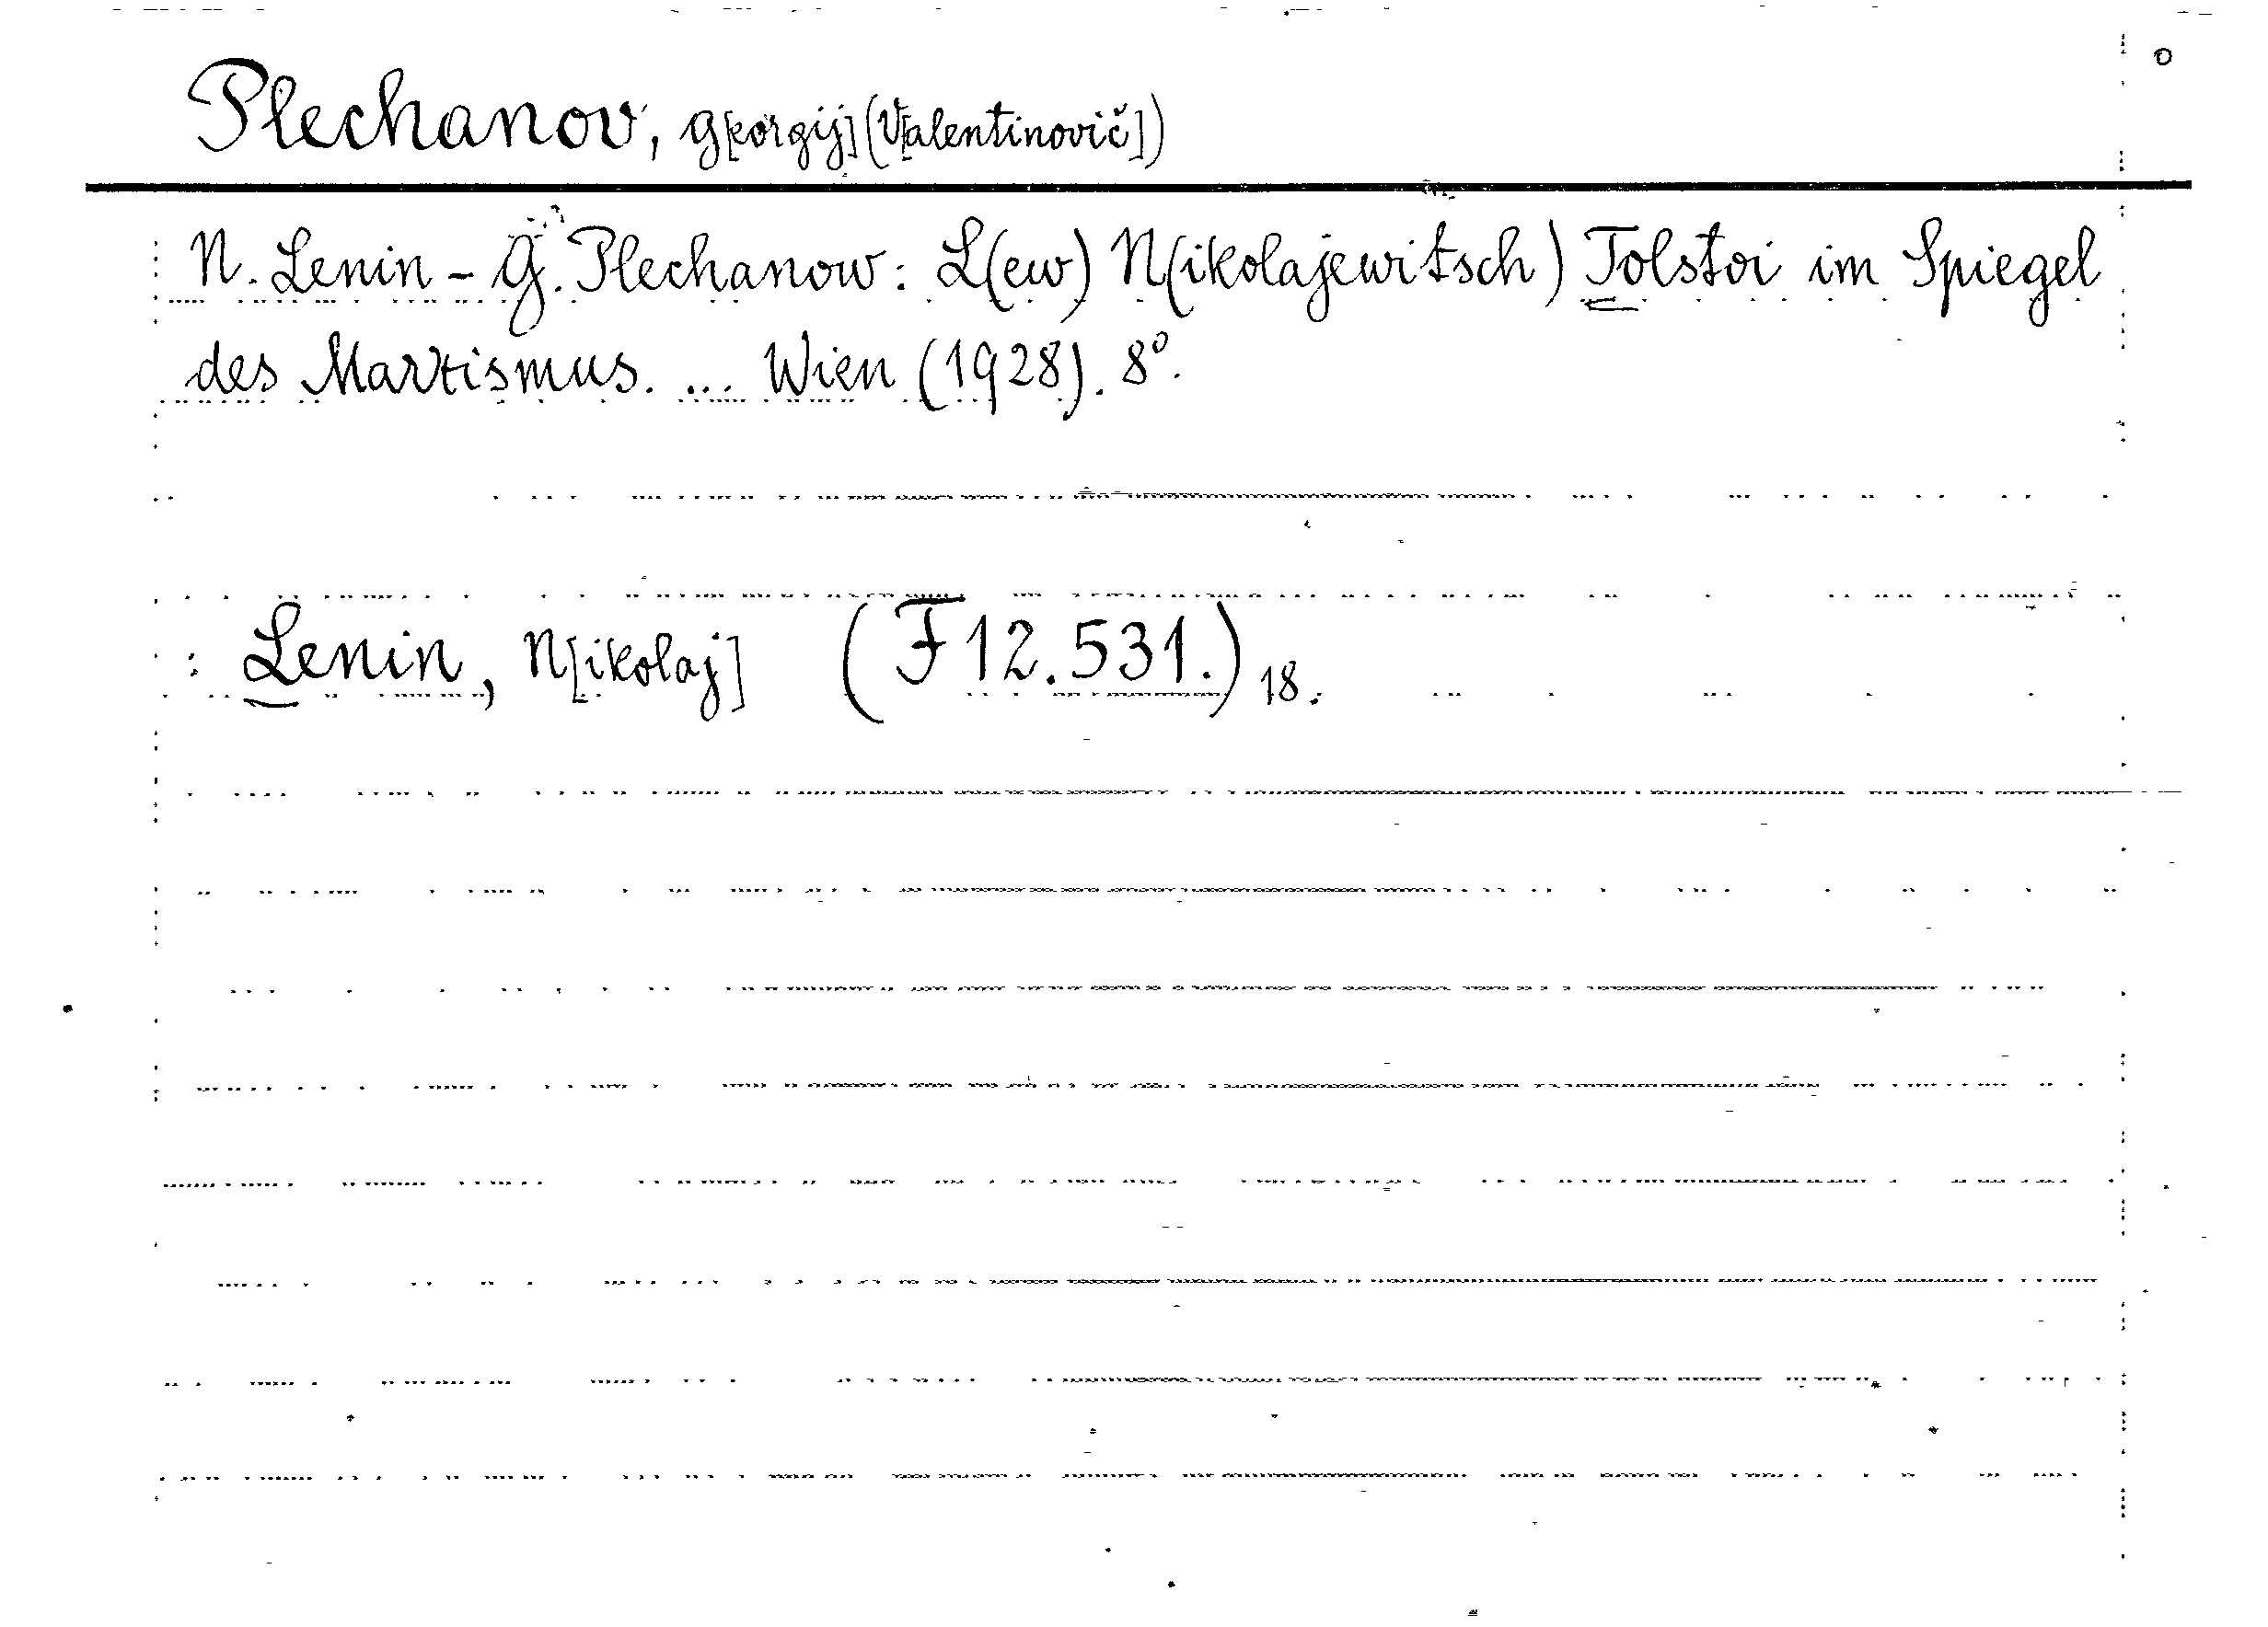 Plechanov, G[eorgij] (V[alentinovič])
N. Lenin - G. Plechanow: L(ew) N(ikolajewitsch) Tolstoi im Spiegel
des Marxismus. ... Wien (1928). 8°.
: Lenin, N[ikolaj] (F12.531.) 18.